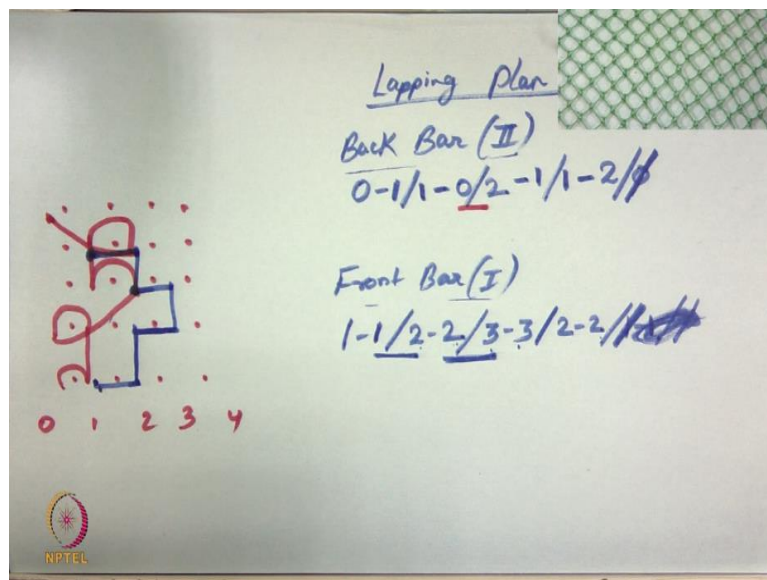 Lapping Plan
Back Bar (II)
0-1/1-0/2-1/1-2//
Front Bar (I)
1-1/2-2/3-3/2-2//
0 1 2 3 4
NPTEL